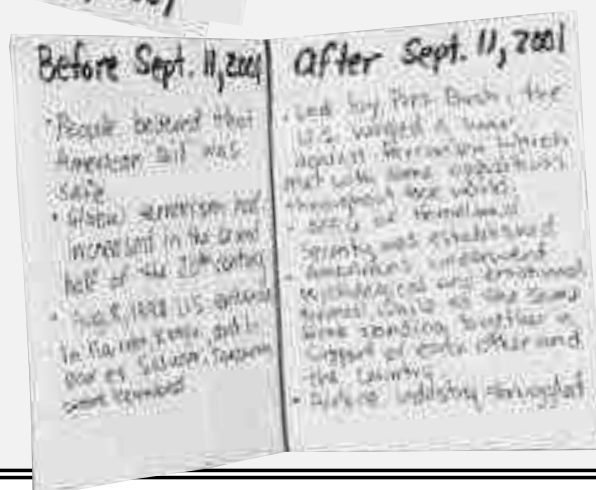 Before Sept. 11, 2001
• People believed that
American soil was
safe
• Global terrorism had
increased in the second
half of the 20th century
• Aug. 8, 1998 U.S.
in Nairobi, Kenya, and in
Dar es Salaam, Tanzania
were bombed
After Sept. 11, 2001
• Led by Pres. Bush, the
U.S. waged a war
against terrorism which
met with some opposition
throughout the world.
• Office of Homeland
Security was established
• Americans underwent
psychological and emotional
while at the same
time standing together in
support of each other and
the country
• Airline industry struggled